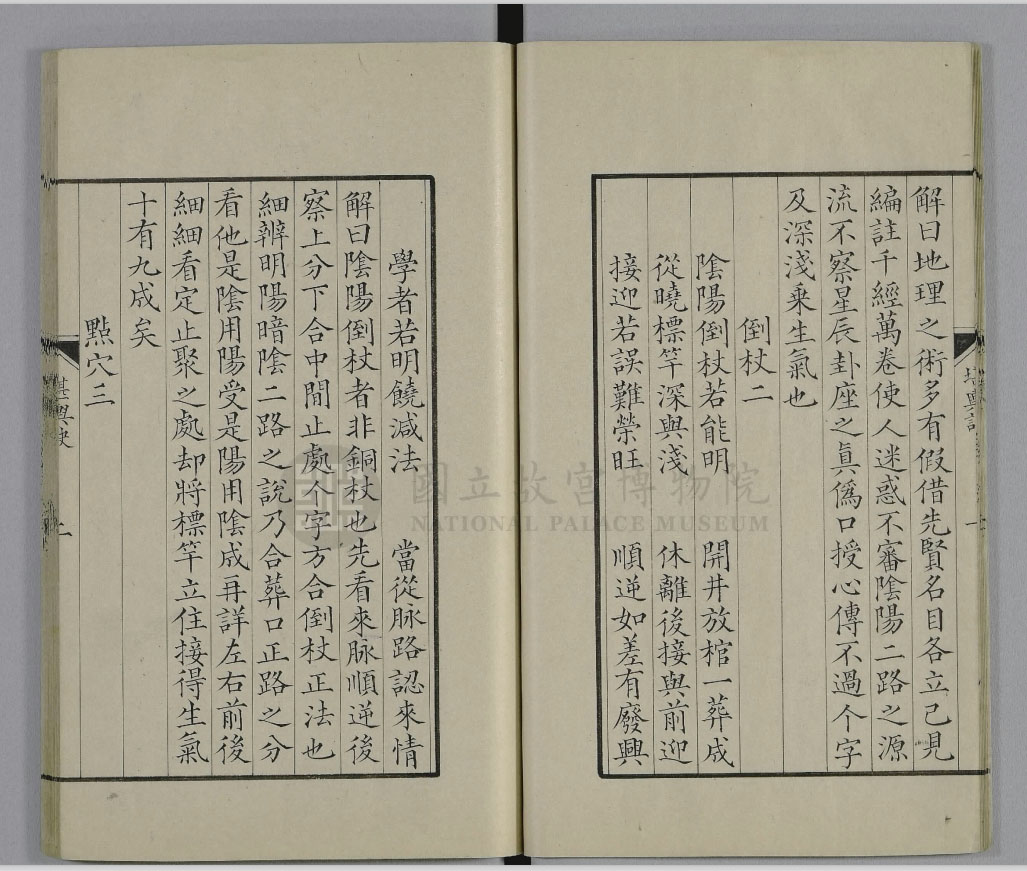 解曰地理之術多有假借先賢名目各立己見
編註千經萬卷使人迷惑不審隂陽二路之源
流不察星辰卦座之真僞口授心傳不過个字
及深淺乗生氣也
倒杖二
隂陽倒杖若能明 開井放棺一葬成
從曉標竿深與淺 休離後接與前迎
接迎若誤難榮旺 順逆如差有廢興
學者若明饒減法 當從脉路認來情
解曰隂陽倒杖者非銅杖也先看來脉順逆後
察上分下合中間止處个字方合倒杖正法也
細辨明陽暗隂二路之說乃合葬口正路之分
看他是隂用陽受是陽用隂成再詳左右前後
細細看定止聚之處却將標竿立住接得生氣
十有九成矣
點穴三
國立故宮博物院
NATIONAL PALACE MUSEUM